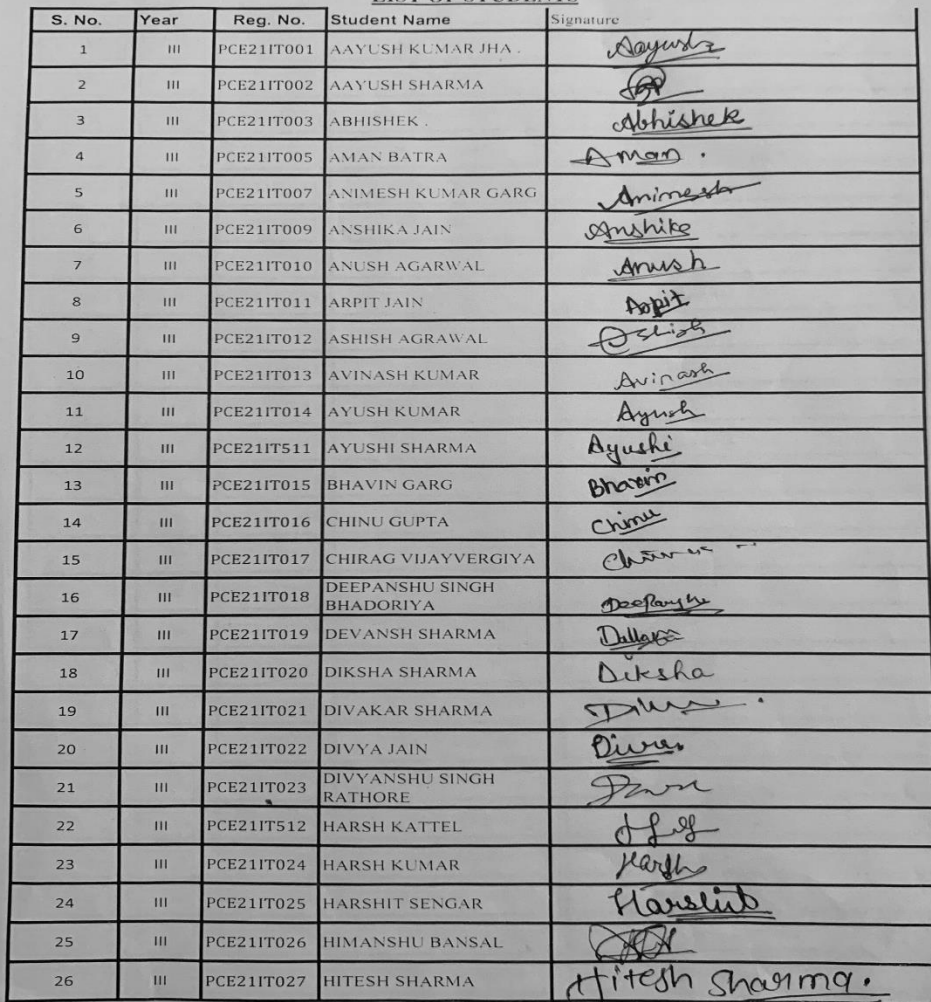 LIST OF STUDENTS
S. No. Year Reg. No. Student Name Signature
1 III PCE21IT001 AAYUSH KUMAR JHA . Aayush
2 III PCE21IT002 AAYUSH SHARMA
3 III PCE21IT003 ABHISHEK . Abhishek
4 III PCE21IT005 AMAN BATRA Aman .
5 III PCE21IT007 ANIMESH KUMAR GARG Animesh
6 III PCE21IT009 ANSHIKA JAIN Anshika
7 III PCE21IT010 ANUSH AGARWAL Anush
8 III PCE21IT011 ARPIT JAIN Arpit
9 III PCE21IT012 ASHISH AGRAWAL Ashish
10 III PCE21IT013 AVINASH KUMAR Avinash
11 III PCE21IT014 AYUSH KUMAR Ayush
12 III PCE21IT511 AYUSHI SHARMA Ayushi
13 III PCE21IT015 BHAVIN GARG Bhavin
14 III PCE21IT016 CHINU GUPTA Chinu
15 III PCE21IT017 CHIRAG VIJAYVERGIYA
16 III PCE21IT018 DEEPANSHU SINGH
BHADORIYA Deepanshu
17 III PCE21IT019 DEVANSH SHARMA
18 III PCE21IT020 DIKSHA SHARMA Diksha
19 III PCE21IT021 DIVAKAR SHARMA
20 III PCE21IT022 DIVYA JAIN
21 III PCE21IT023 DIVYANSHU SINGH
RATHORE
22 III PCE21IT512 HARSH KATTEL
23 III PCE21IT024 HARSH KUMAR Harsh
24 III PCE21IT025 HARSHIT SENGAR Harshit
25 III PCE21IT026 HIMANSHU BANSAL
26 III PCE21IT027 HITESH SHARMA Hitesh Sharma.